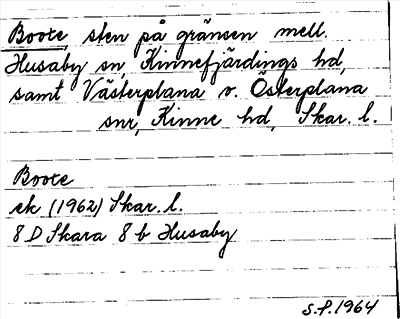 Boote, sten på gränsen mell.
Husaby sn, Kinnefjärdings hd,
samt Västerplana o. Österplana
snr, Kinne hd, Skar. l.
Boote
ek (1962) Skar. l.
8 D Skara 8 b Husaby
S.F. 1964